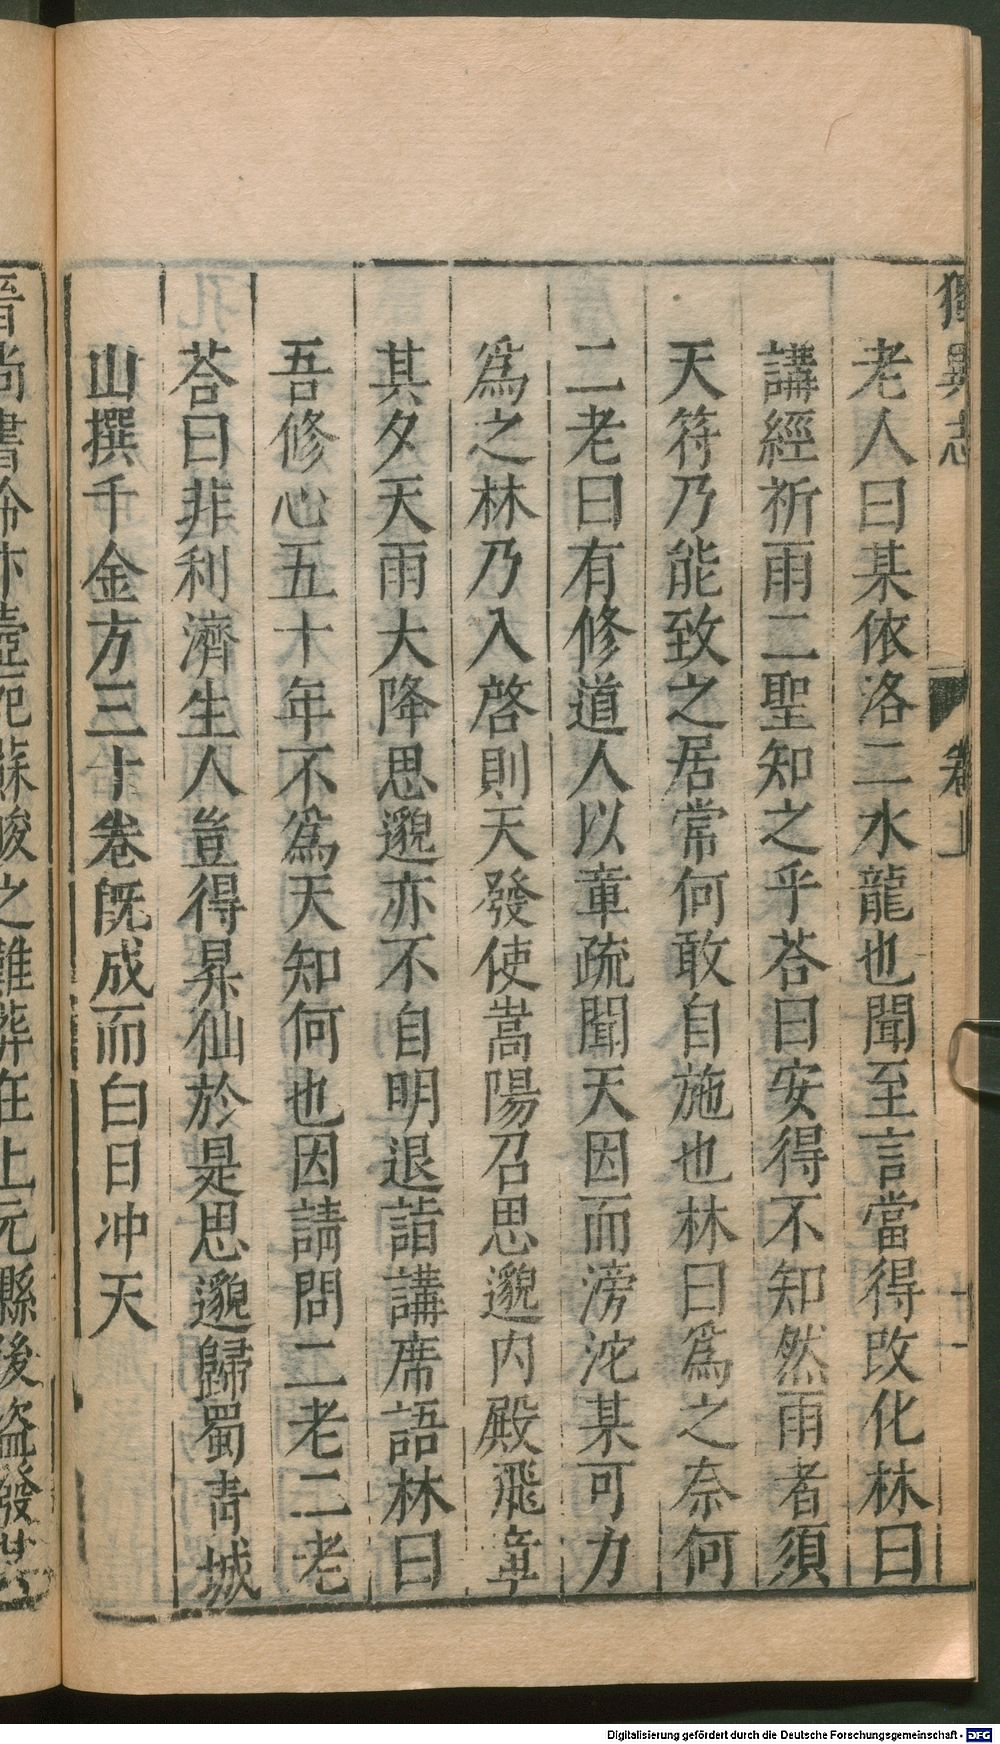 獨異志 卷上 十一
老人曰某依洛二水龍也聞至言當得改化林曰
講經祈雨二聖知之乎荅曰安得不知然雨者須
天符乃能致之居常何敢自施也林曰爲之奈何
二老曰有修道人以章疏聞天因而滂沱某可力
爲之林乃入啓則天發使嵩陽召思邈内殿飛章
其夕天雨大降思邈亦不自明退詣講席語林曰
吾修心五十年不爲天知何也因請問二老二老
荅曰非利濟生人豈得昇仙於是思邈歸蜀青城
山撰千金方三十卷既成而白日冲天
晋尚書令卞壼死蘇峻之難葬在上元縣後盗發其
Digitalisierung gefördert durch die Deutsche Forschungsgemeinschaft - DFG